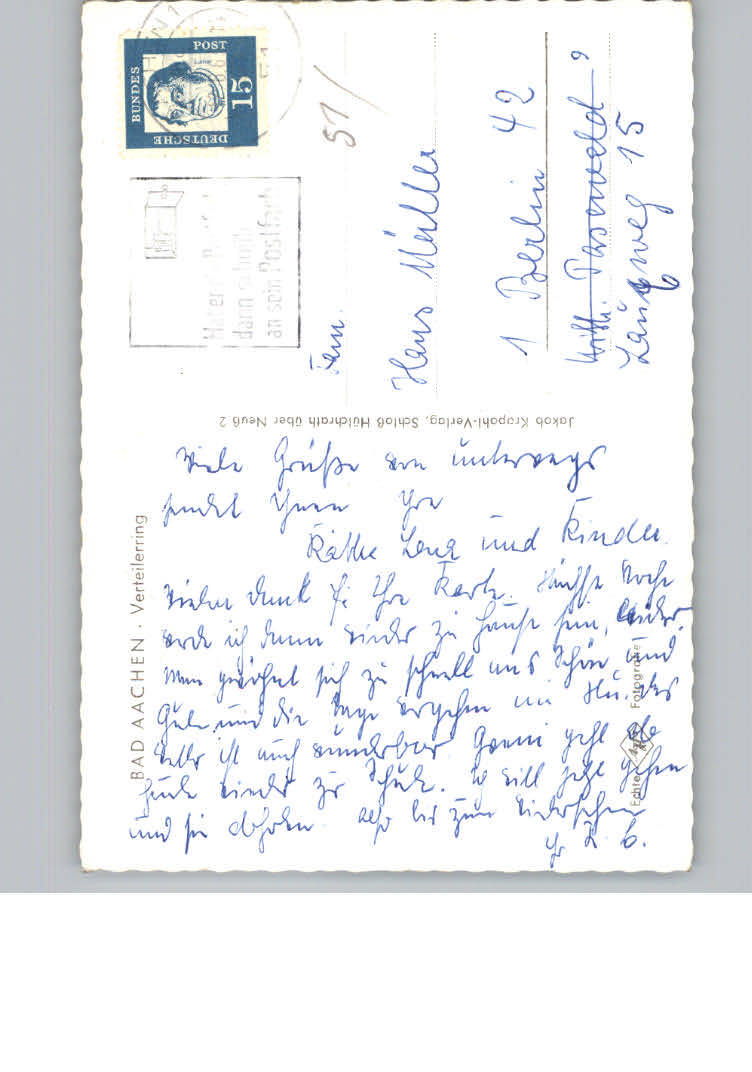 BAD AACHEN · Verteilerring
Viele Grüße von unterwegs
sendet Ihnen Ihre
Käthe Lenz und Kinder.
Vielen Dank f. Ihre Karte. Nächste Woche
werde ich dann wieder zu Hause sein, leider.
Man gewöhnt sich zu schnell ans Schöne und
Gute, und die Tage vergehen im Nu. Das
Wetter ist auch wunderbar. geht
heute wieder zur Schule. Ich will jetzt gehen
und sie abholen. Also bis zum Wiedersehen
Jakob Krapohl-Verlag, Schloß Hülchrath über Neuß 2
Echte Fotografie
DEUTSCHE BUNDESPOST
15
Hat er ein Postfach
dann schreib
an sein Postfach
51/
Fam.
Hans Müller
1 Berlin 42
15